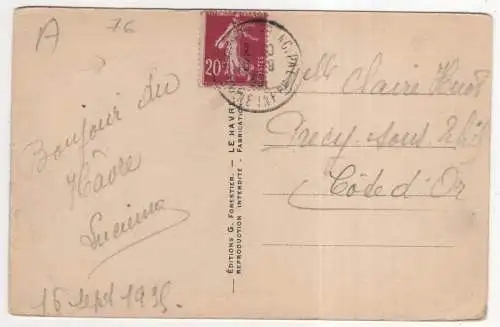 A 76
Bonjour du
Hâvre
Lucienne
16 sept 1935.
20
POSTES
ÉDITIONS G. FORESTIER. — LE HAVRE
REPRODUCTION INTERDITE - FABRICATION
Mlle Claire
Précy-sous-Thil
Côte d'Or